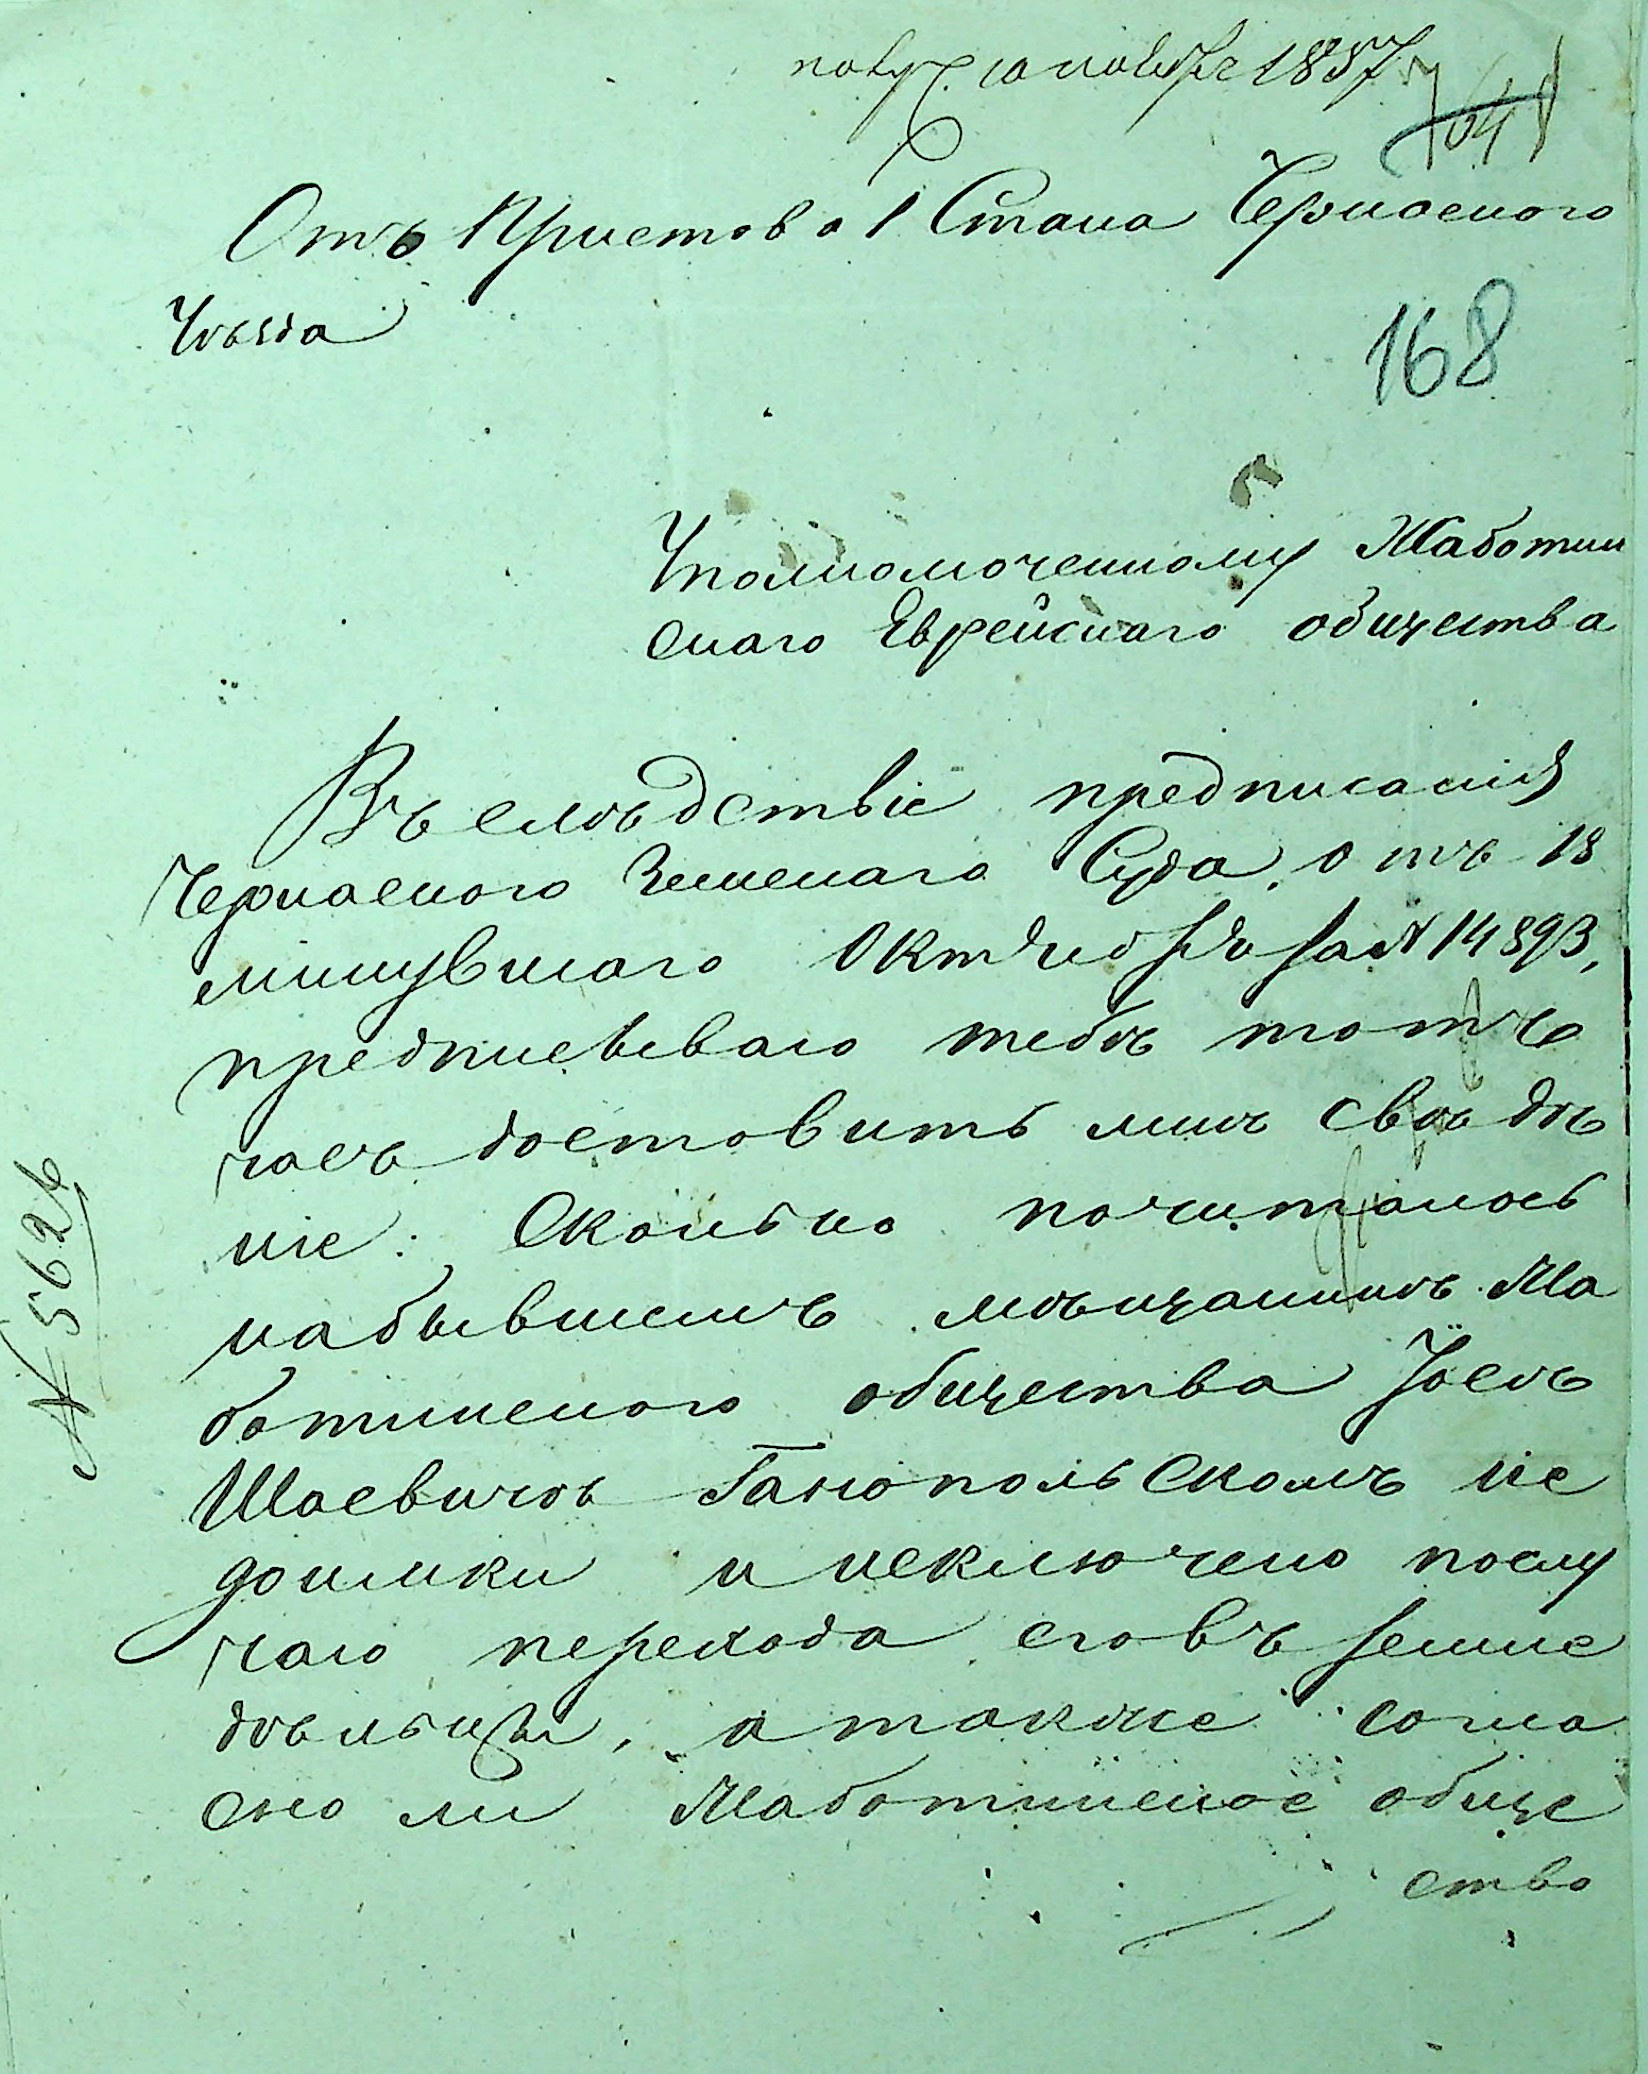 получ. 10 ноября 1857
Отъ Пристава 1 Стана Черкаскаго
Уѣзда
168
Уполномоченному Жаботин
скаго Еврейскаго общества
Въ слѣдствіе предписанія
Черкаскаго Земскаго Суда, отъ 18
минувшаго Октября за № 14893,
предписываю тебѣ тотъ
часъ доставить мнѣ свѣдѣ
ніе: Сколько почиталось
на бывшемъ мѣщанинѣ Жа
ботинскаго общества Іосѣ
Шаевичѣ Ганопольскомъ не
доимки и исключено по слу
чаю перехода его въ земле
дѣльцы, а также согла
сно ли Жаботинское обще
ство
№ 5626